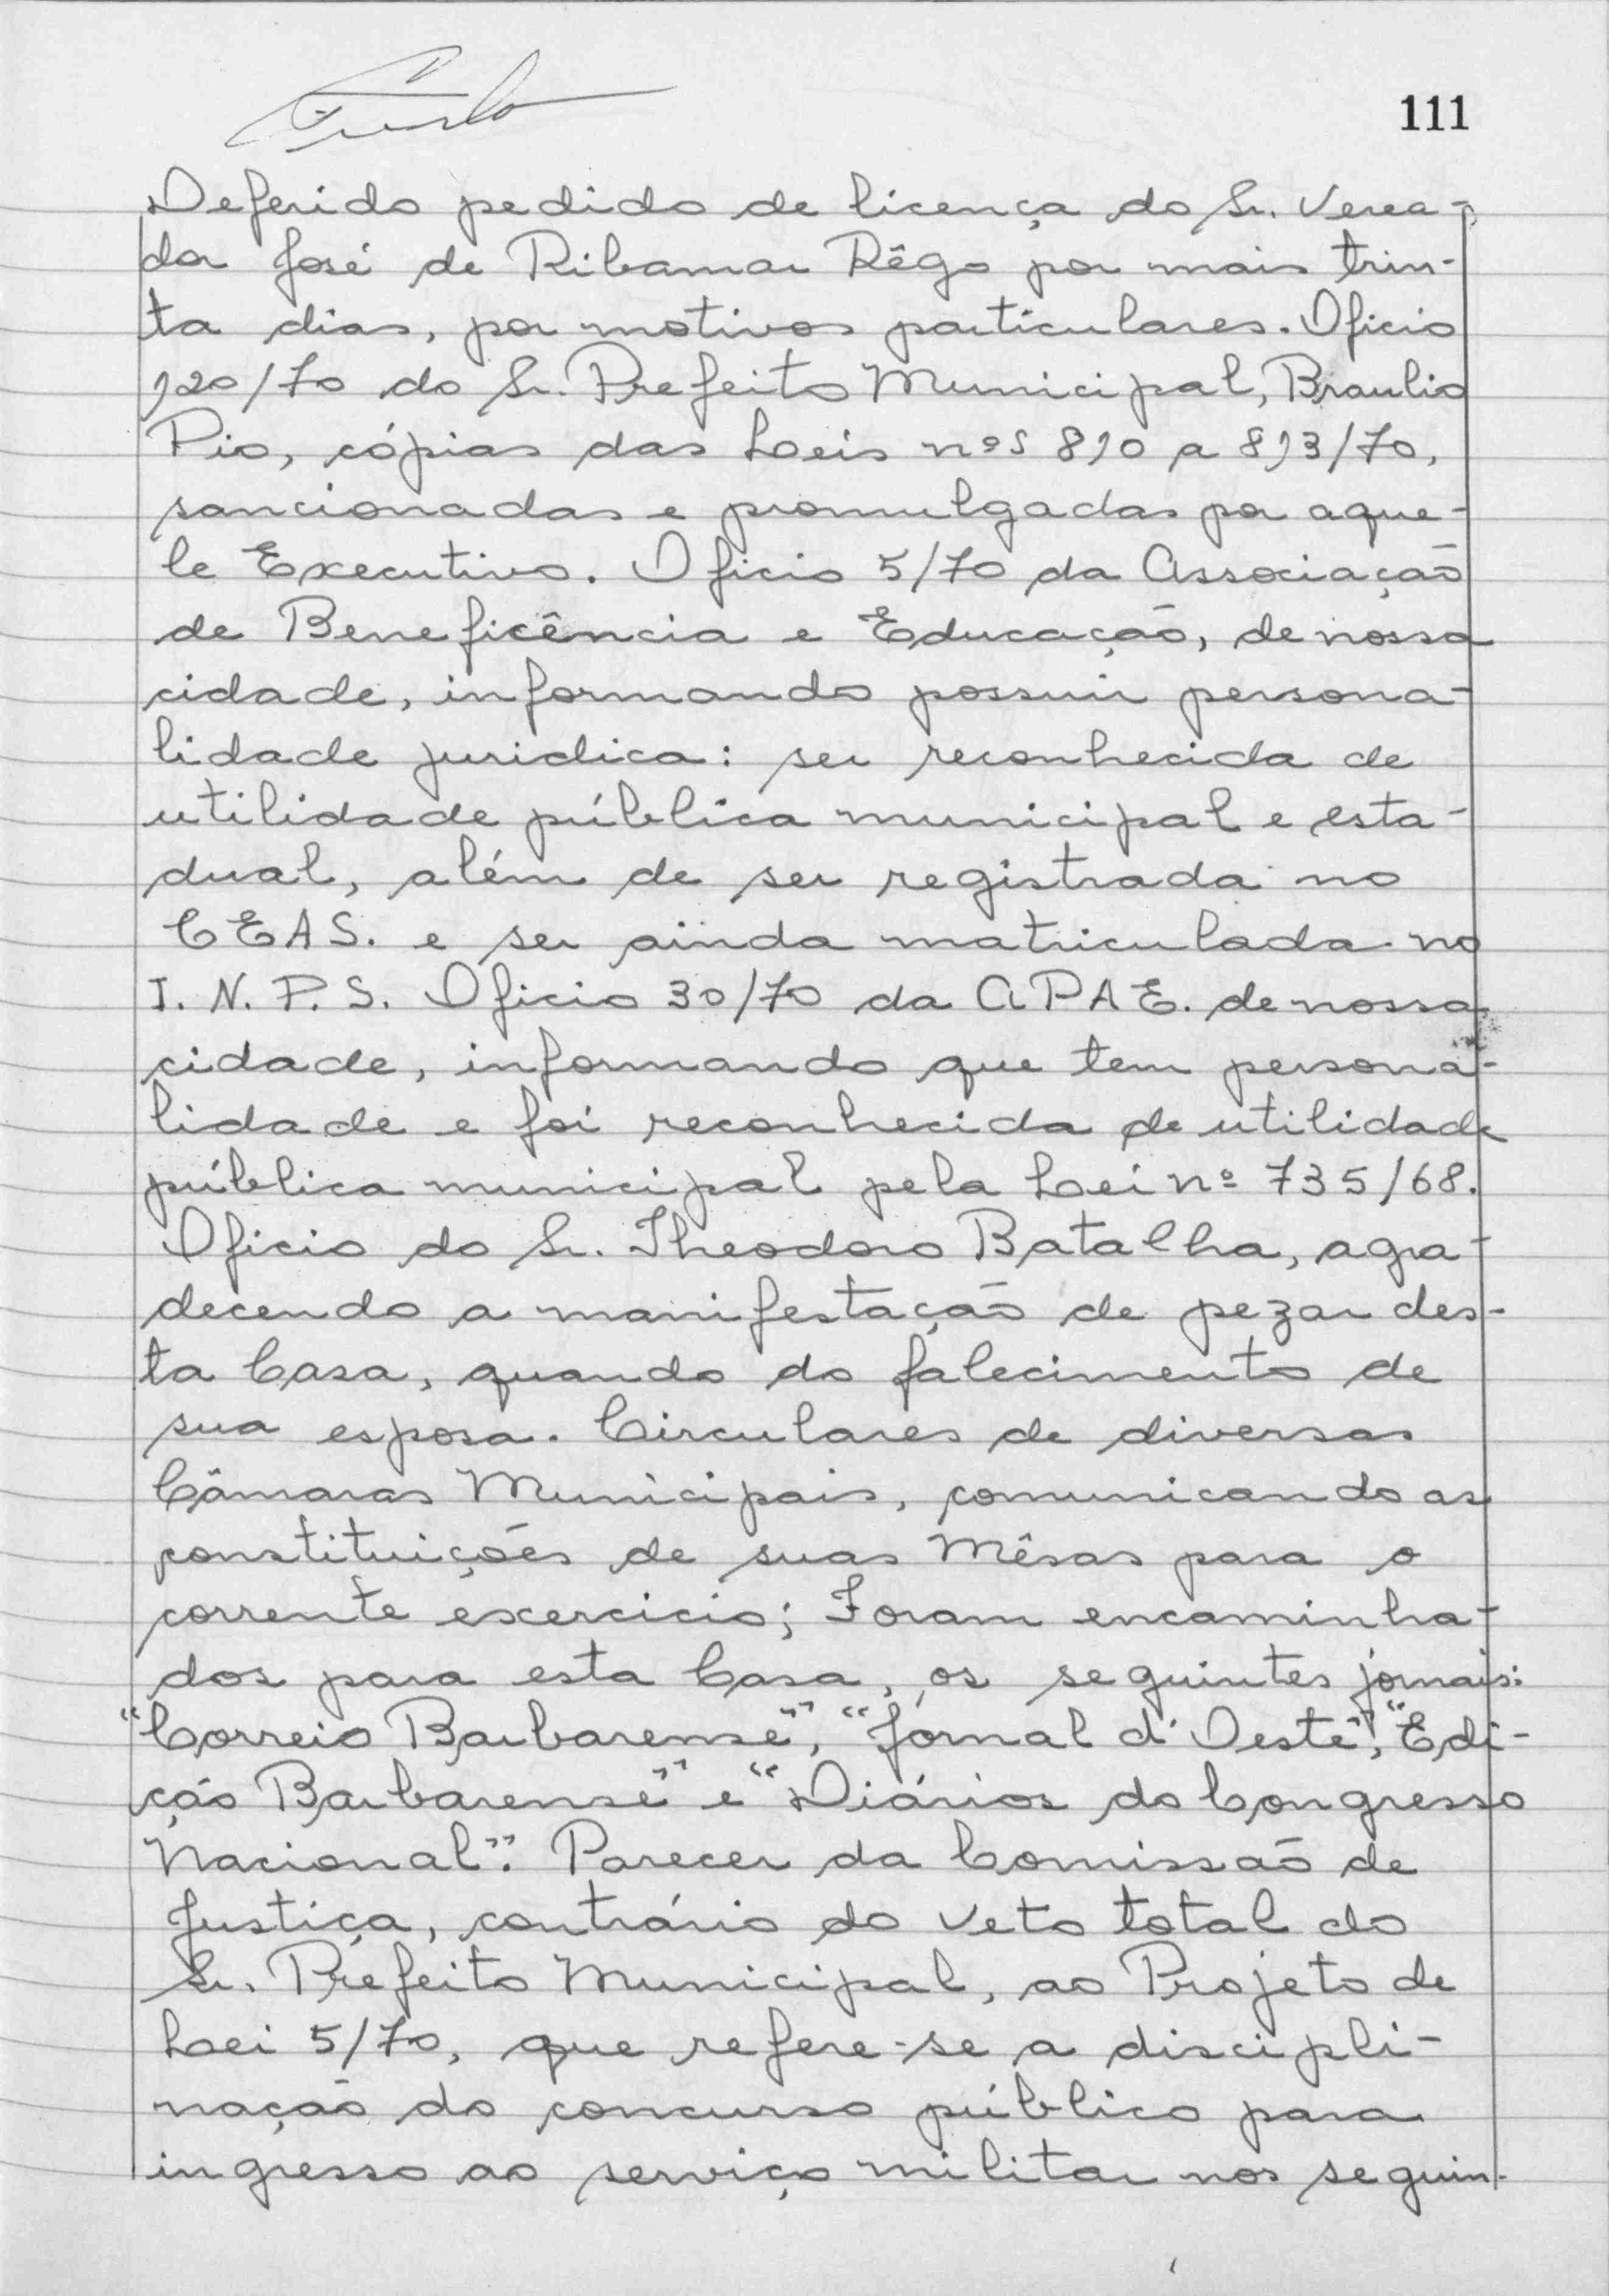 111
Deferido pedido de licença do Sr. Verea-
dor José de Ribamar Rêgo por mais trin-
ta dias, por motivos particulares. Oficio
120/70 do Sr. Prefeito Municipal, Braulio
Pio, cópias das Leis nºs 810 a 813/70,
sancionadas e promulgadas por aque-
le Executivo. Oficio 5/70 da Associação
de Beneficência e Educação, de nossa
cidade, informando possuir persona-
lidade juridica: ser reconhecida de
utilidade pública municipal e esta-
dual, além de ser registrada no
CEAS. e ser ainda matriculada no
I. N. P. S. Oficio 30/70 da APAE. de nossa
cidade, informando que tem persona-
lidade e foi reconhecida de utilidade
pública municipal pela Lei nº 735/68.
Oficio do Sr. Theodoro Batalha, agra-
decendo a manifestação de pezar des-
ta Casa, quando do falecimento de
sua esposa. Circulares de diversas
Câmaras Municipais, comunicando as
constituições de suas Mêsas para o
corrente excercicio; Foram encaminha-
dos para esta Casa, os seguintes jornais:
"Correio Barbarense", "Jornal d'Oeste", "Edi-
ção Barbarense" e "Diários do Congresso
Nacional". Parecer da Comissão de
Justiça, contrário do veto total do
Sr. Prefeito Municipal, ao Projeto de
Lei 5/70, que refere-se a discipli-
nação do concurso público para
ingresso ao serviço militar nos seguin-